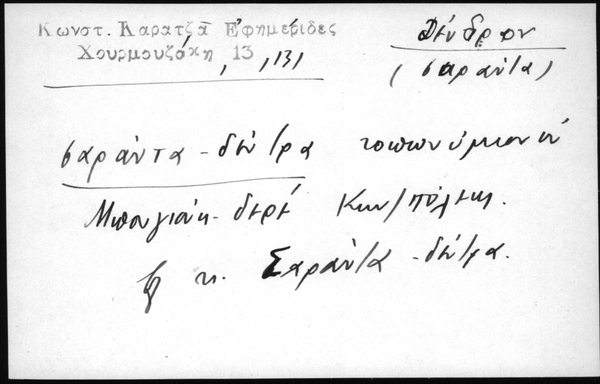 Κωνστ. Καρατζᾶ Ἐφημερίδες
Χουρμουζάκη 13, , 131
Δένδρον
(σαράντα)
σαράντα-δένδρα τοπωνύμιον
Μπουγιούκ-δερέ Κων/πόλεως.
Σαράντα-δένδρα.